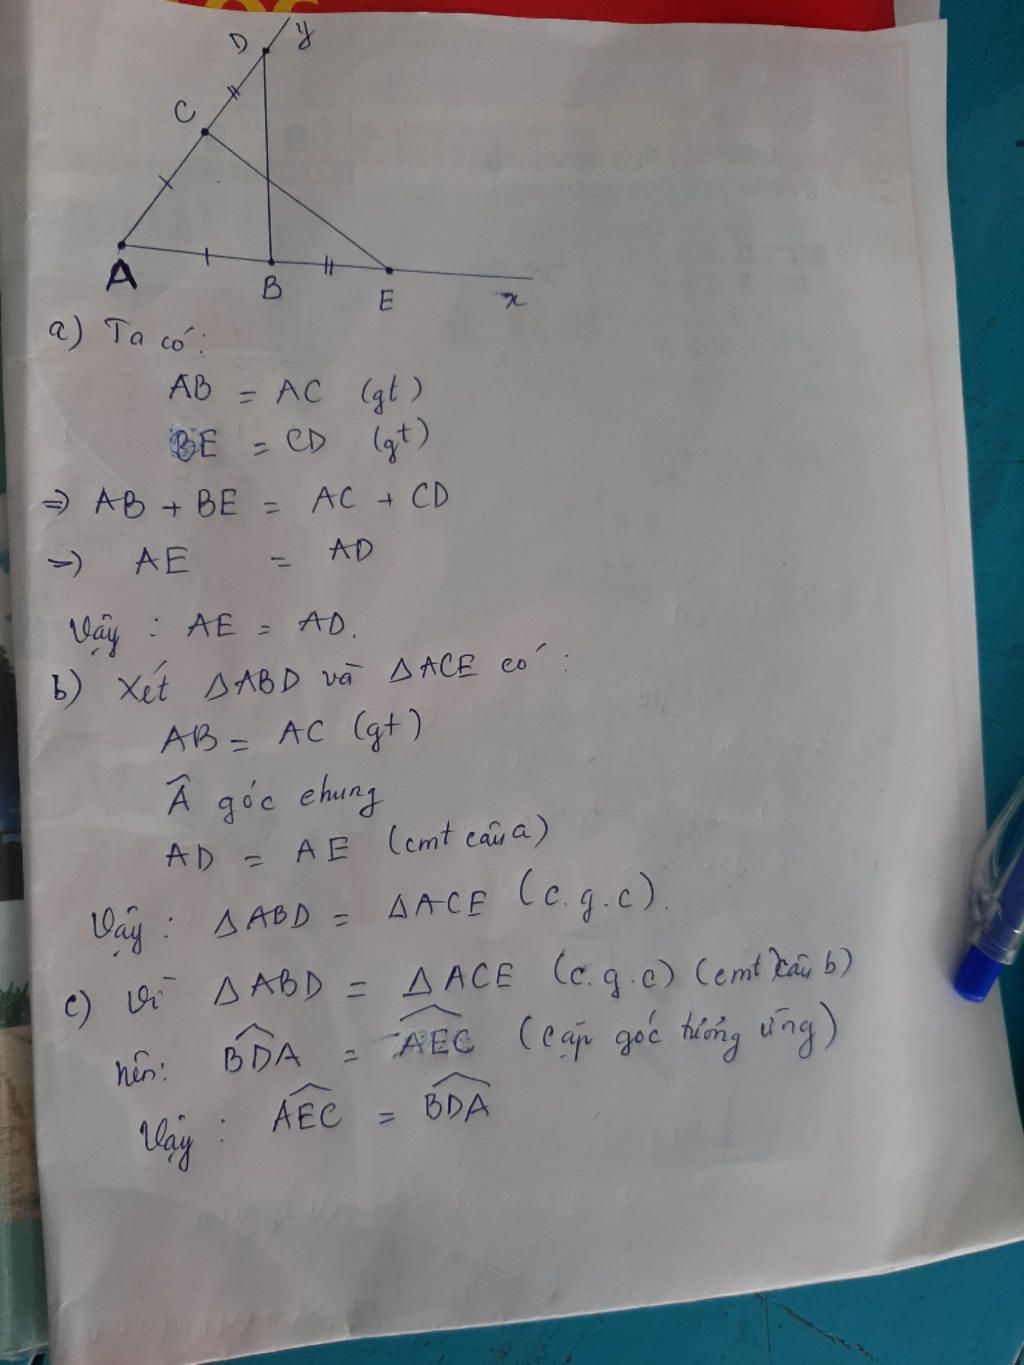 D y
C
A B E x
a) Ta có:
AB = AC (gt)
BE = CD (gt)
=> AB + BE = AC + CD
=> AE = AD
Vậy : AE = AD.
b) Xét ΔABD và ΔACE có :
AB = AC (gt)
Â góc chung
AD = AE (cmt câu a)
Vậy : ΔABD = ΔACE (c.g.c).
c) Vì ΔABD = ΔACE (c.g.c) (cmt câu b)
nên: \widehat{BDA} = \widehat{AEC} (cặp góc tương ứng)
Vậy : \widehat{AEC} = \widehat{BDA}